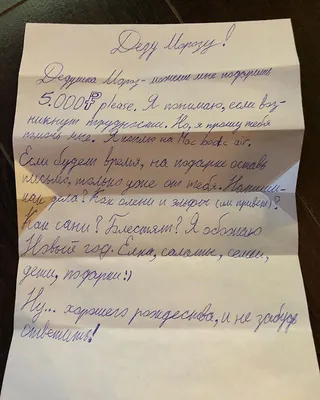 Деду Морозу!
Дедушка Мороз - можешь мне подарить
5.000₽ please. Я понимаю, если воз-
никнут трудности. Но, я прошу тебя
помоги мне. Я коплю на Mac book air.
Если будет время, на подарки оставь
письмо, только уже от тебя.
как дела? Как олени и эльфы (им привет)?
Как сани? Блестят? Я обожаю
Новый год. Ёлка, салаты, семья,
дети, подарки:)
Ну... хорошего рождества, и не забудь
ответить!